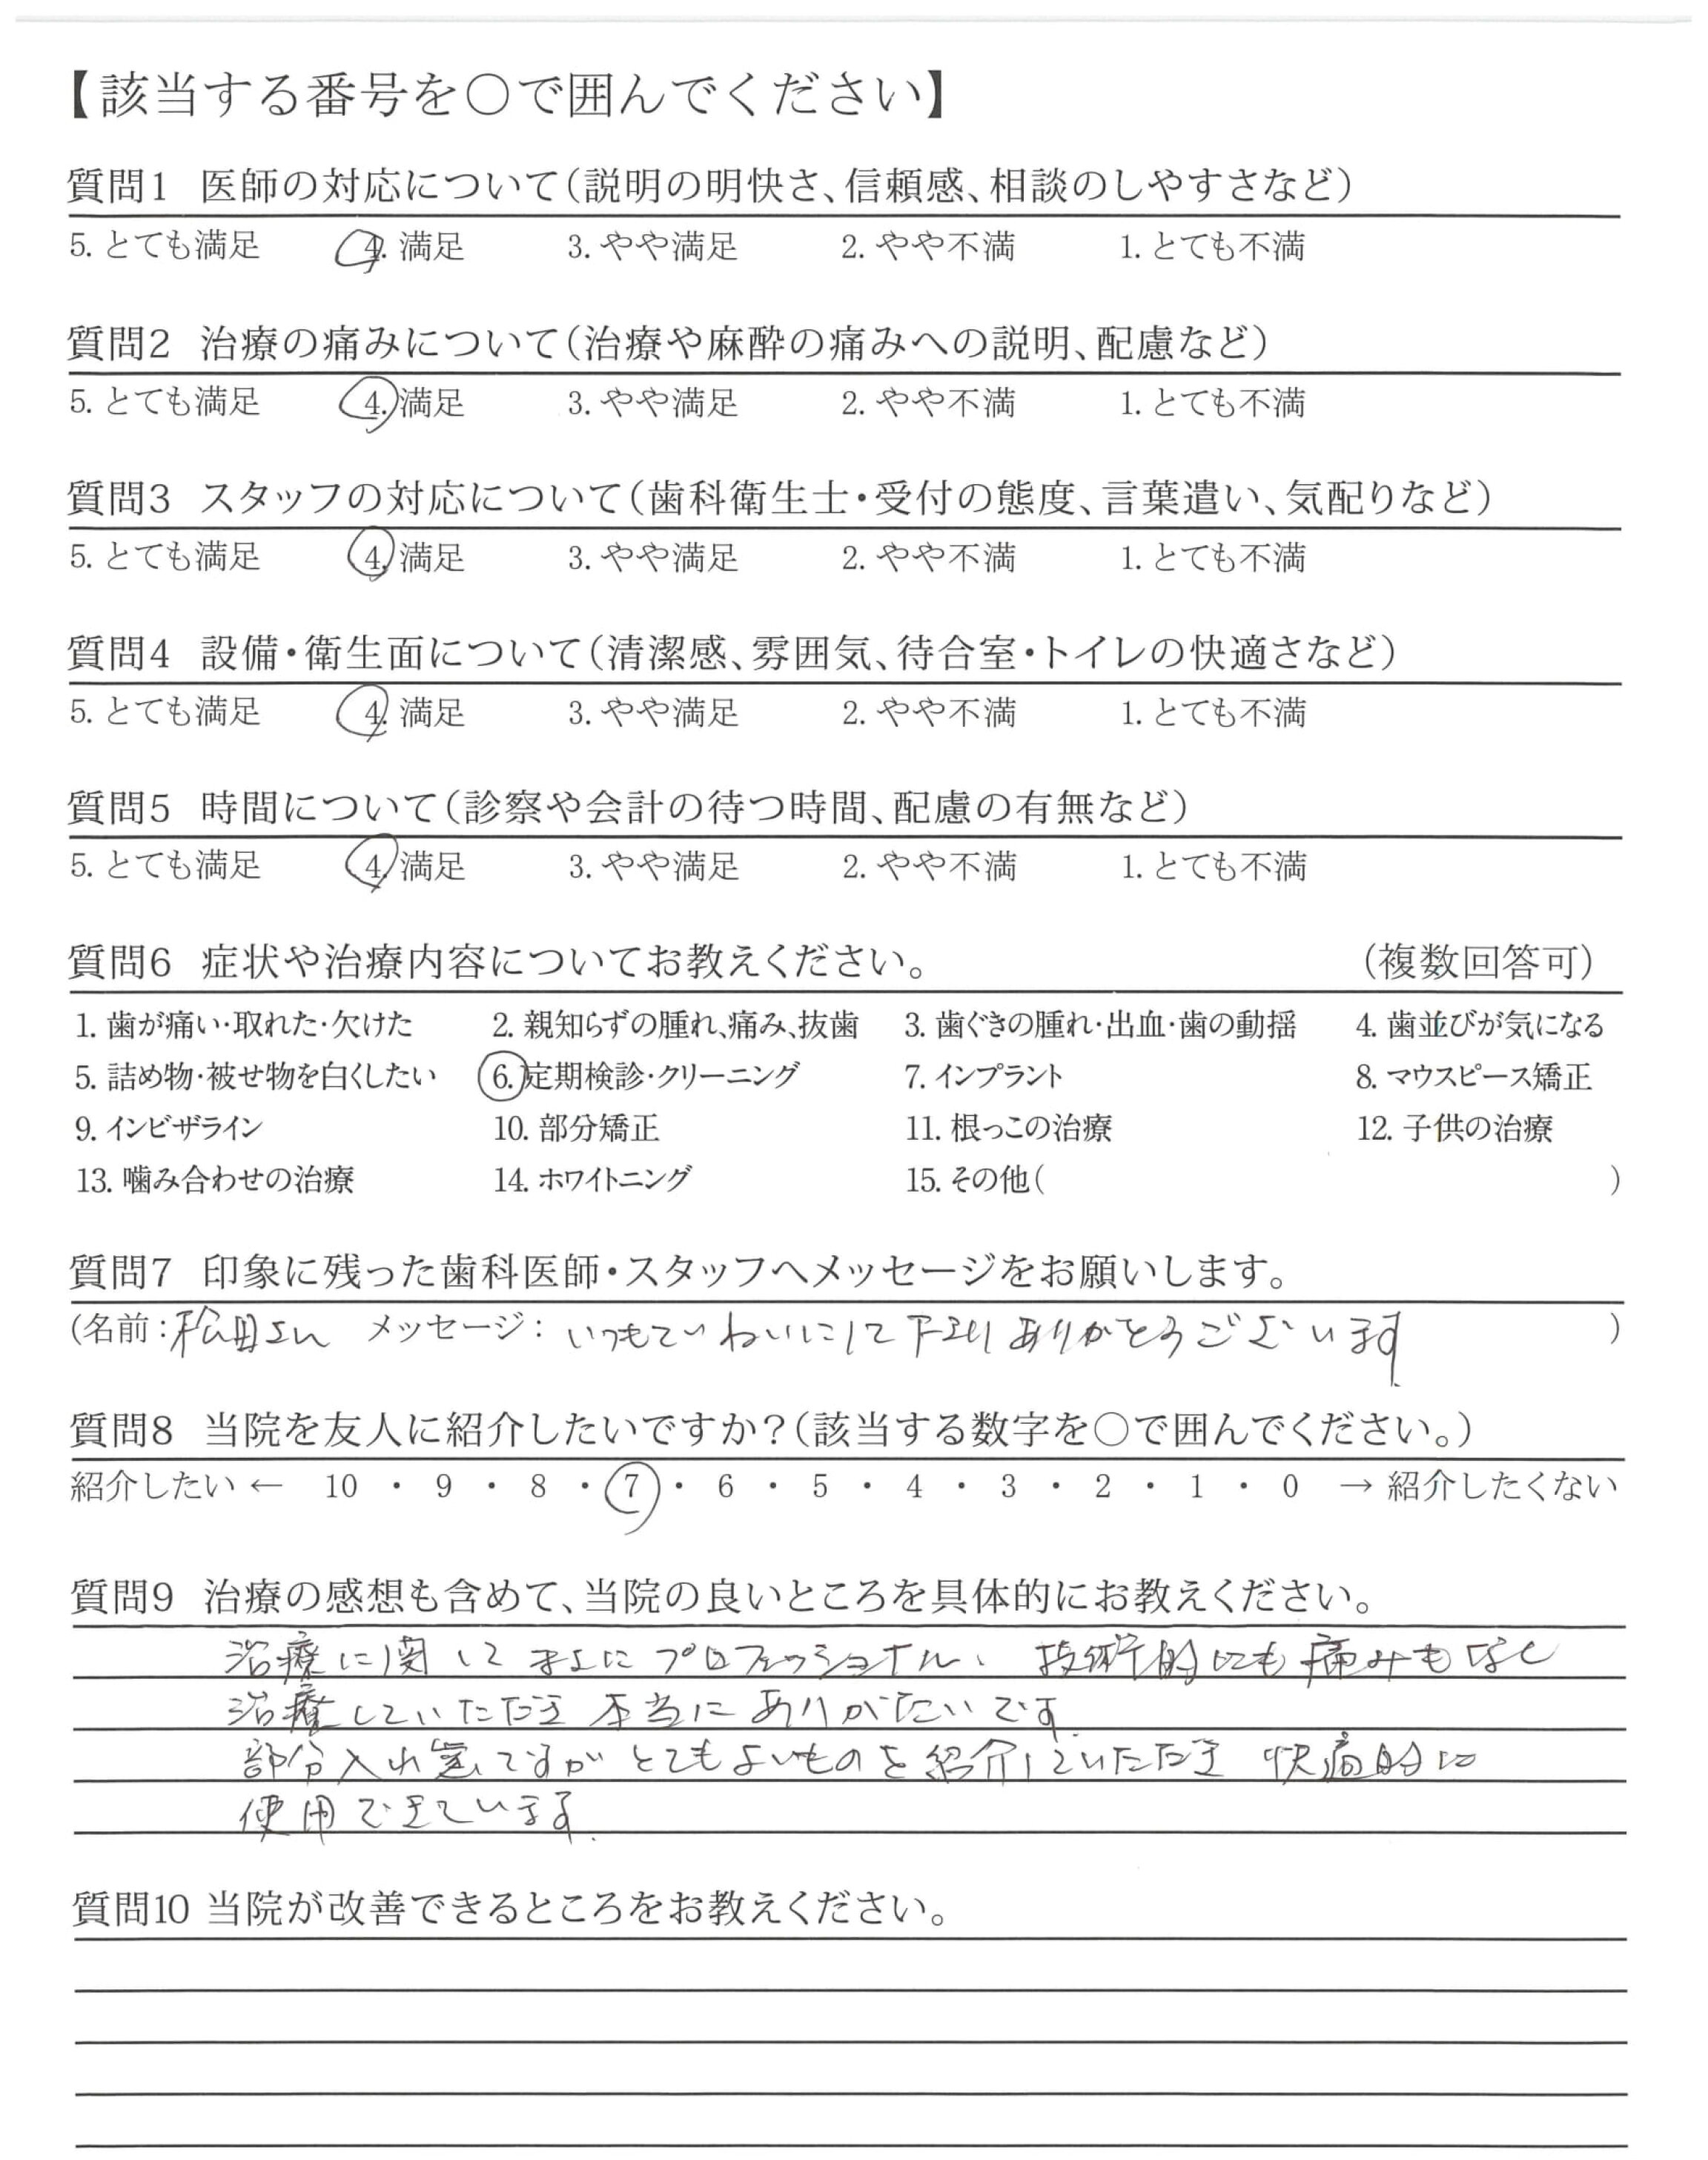 【該当する番号を〇で囲んでください】
質問1 医師の対応について（説明の明快さ、信頼感、相談のしやすさなど）
5. とても満足 4. 満足 3. やや満足 2. やや不満 1. とても不満
質問2 治療の痛みについて（治療や麻酔の痛みへの説明、配慮など）
5. とても満足 4. 満足 3. やや満足 2. やや不満 1. とても不満
質問3 スタッフの対応について（歯科衛生士・受付の態度、言葉遣い、気配りなど）
5. とても満足 4. 満足 3. やや満足 2. やや不満 1. とても不満
質問4 設備・衛生面について（清潔感、雰囲気、待合室・トイレの快適さなど）
5. とても満足 4. 満足 3. やや満足 2. やや不満 1. とても不満
質問5 時間について（診察や会計の待つ時間、配慮の有無など）
5. とても満足 4. 満足 3. やや満足 2. やや不満 1. とても不満
質問6 症状や治療内容についてお教えください。 （複数回答可）
1. 歯が痛い・取れた・欠けた 2. 親知らずの腫れ、痛み、抜歯 3. 歯ぐきの腫れ・出血・歯の動揺 4. 歯並びが気になる
5. 詰め物・被せ物を白くしたい 6. 定期検診・クリーニング 7. インプラント 8. マウスピース矯正
9. インビザライン 10. 部分矯正 11. 根っこの治療 12. 子供の治療
13. 噛み合わせの治療 14. ホワイトニング 15. その他（ ）
質問7 印象に残った歯科医師・スタッフへメッセージをお願いします。
（名前：松田さん メッセージ：いつもていねいにして下さりありがとうございます）
質問8 当院を友人に紹介したいですか？（該当する数字を〇で囲んでください。）
紹介したい ← 10 ・ 9 ・ 8 ・ 7 ・ 6 ・ 5 ・ 4 ・ 3 ・ 2 ・ 1 ・ 0 → 紹介したくない
質問9 治療の感想も含めて、当院の良いところを具体的にお教えください。
治療に関してまさにプロフェッショナル、技術的にも痛みもなく
治療していただき本当にありがたいです。
部分入れ歯ですがとてもよいものを紹介していただき 快適的に
使用できています。
質問10 当院が改善できるところをお教えください。